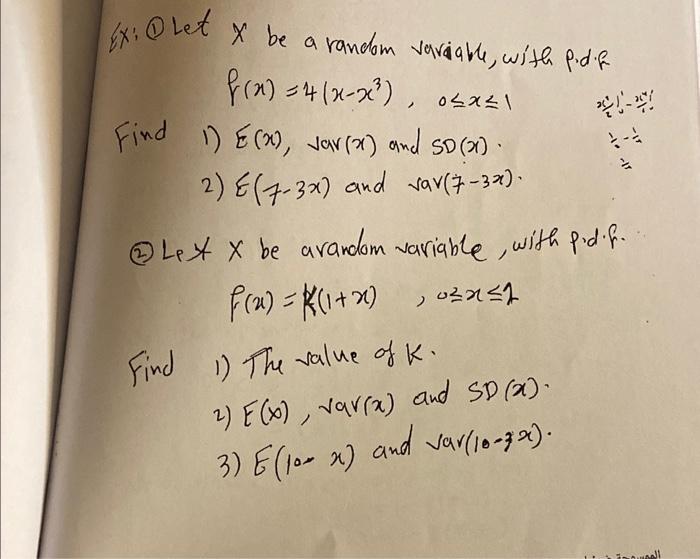 Ex: ① Let X be a random variable, with p.d.f
f(x) = 4(x-x³) , 0≤x≤1
Find 1) E(x), var(x) and SD(x).
2) E(7-3x) and var(7-3x).
② Let X be a random variable, with p.d.f.
f(x) = K(1+x) , 0≤x≤1
Find 1) The value of K.
2) E(x), var(x) and SD(x).
3) E(10- x) and var(10-3x).